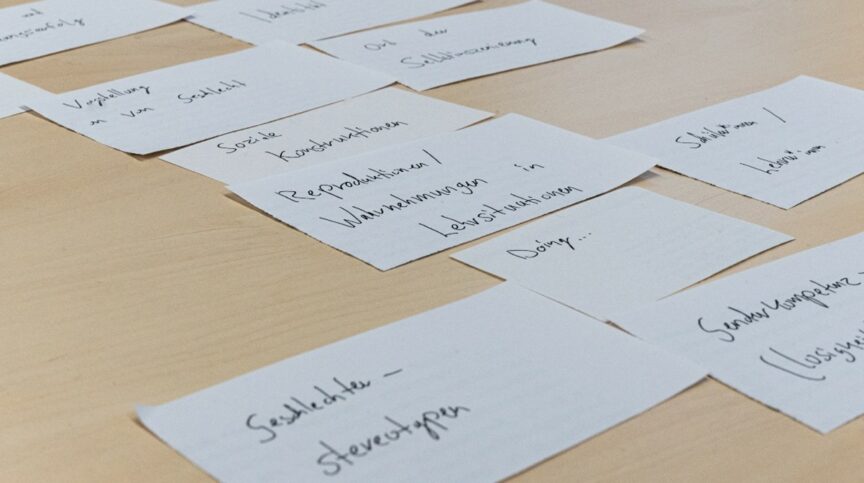 und
Identität
Ort der
Selbstinszenierung
Vorstellung
en von Geschlecht
Soziale
Konstruktionen
Reproduktionen/
Wahrnehmungen in
Lehrsituationen
Schüler*innen /
Lehrer*innen
Doing...
Genderkompetenz -
(losigkeit
Geschlechter -
stereotypen